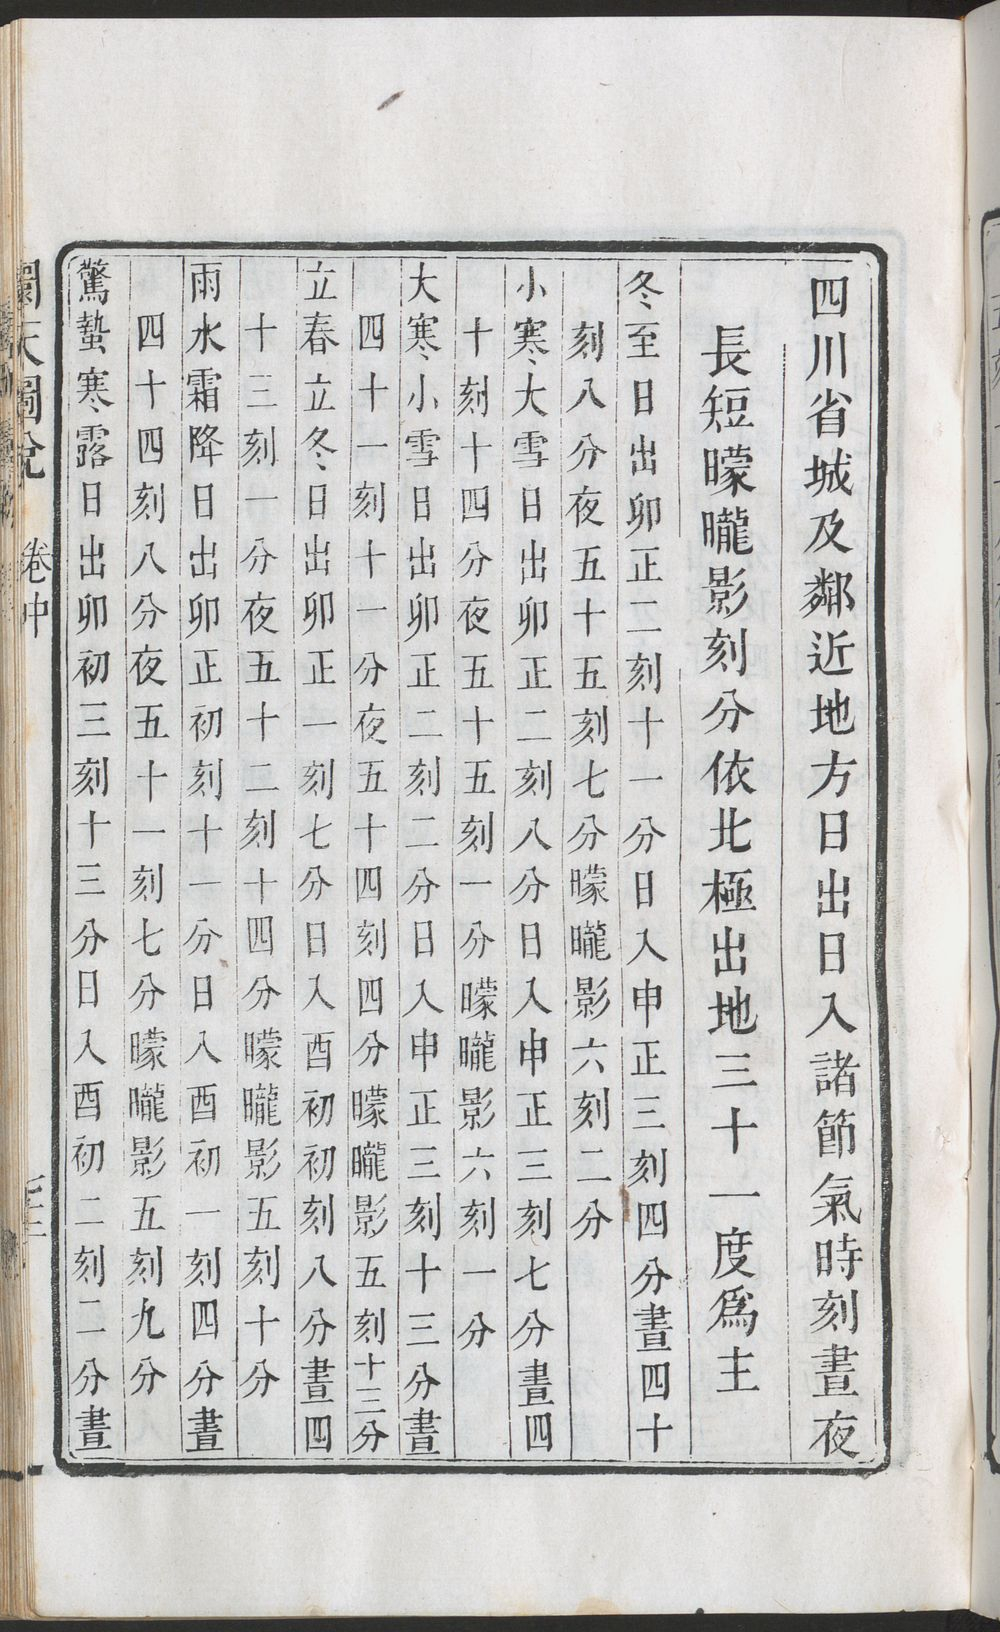 四川省城及鄰近地方日出日入諸節氣時刻晝夜
長短曚曨影刻分依北極出地三十一度爲主
冬至日出卯正二刻十一分日入申正三刻四分晝四十
刻八分夜五十五刻七分曚曨影六刻二分
小寒大雪日出卯正二刻八分日入申正三刻七分晝四
十刻十四分夜五十五刻一分曚曨影六刻一分
大寒小雪日出卯正二刻二分日入申正三刻十三分晝
四十一刻十一分夜五十四刻四分曚曨影五刻十三分
立春立冬日出卯正一刻七分日入酉初初刻八分晝四
十三刻一分夜五十二刻十四分曚曨影五刻十分
雨水霜降日出卯正初刻十一分日入酉初一刻四分晝
四十四刻八分夜五十一刻七分曚曨影五刻九分
驚蟄寒露日出卯初三刻十三分日入酉初二刻二分晝
圜天圖說 卷中